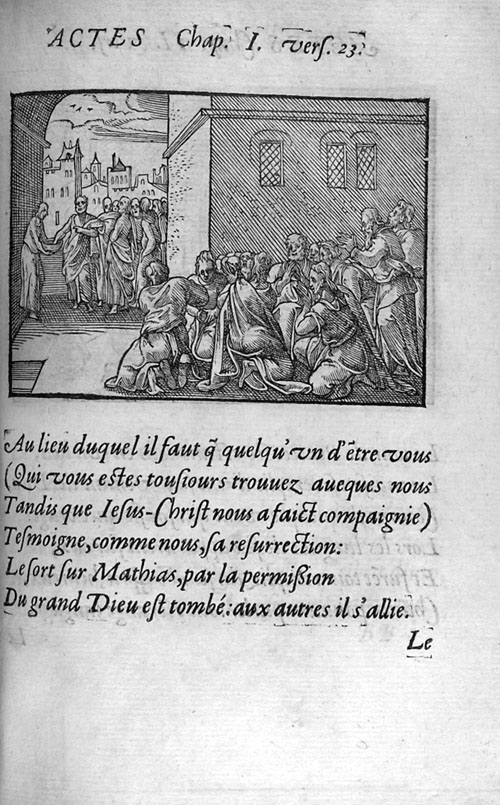 ACTES Chap. I. vers. 23.
Au lieu duquel il faut q̃ quelqu'vn d'ẽtre vous
(Qui vous estes tousiours trouuez aueques nous
Tandis que Iesus-Christ nous a faict compaignie)
Tesmoigne, comme nous, sa resurrection:
Le sort sur Mathias, par la permißion
Du grand Dieu est tombé: aux autres il s'allie.
Le